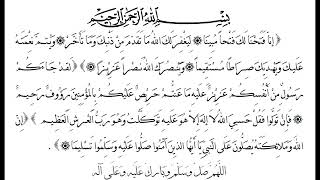 بِسْمِ اللَّهِ الرَّحْمَنِ الرَّحِيمِ
﴿ إِنَّا فَتَحْنَا لَكَ فَتْحًا مُبِينًا ۞ لِيَغْفِرَ لَكَ اللهُ مَا تَقَدَّمَ مِنْ ذَنْبِكَ وَمَا تَأَخَّرَ ۞ وَيُتِمَّ نِعْمَتَهُ
عَلَيْكَ وَيَهْدِيَكَ صِرَاطًا مُسْتَقِيمًا ۞ وَيَنْصُرَكَ اللهُ نَصْرًا عَزِيزًا ﴾ ﴿ لَقَدْ جَاءَكُمْ
رَسُولٌ مِنْ أَنْفُسِكُمْ عَزِيزٌ عَلَيْهِ مَا عَنِتُّمْ حَرِيصٌ عَلَيْكُمْ بِالْمُؤْمِنِينَ رَؤُوفٌ رَحِيمٌ
۞ فَإِنْ تَوَلَّوْا فَقُلْ حَسْبِيَ اللهُ لَا إِلَهَ إِلَّا هُوَ عَلَيْهِ تَوَكَّلْتُ وَهُوَ رَبُّ الْعَرْشِ الْعَظِيمِ ﴾ ﴿ إِنَّ
اللهَ وَمَلَائِكَتَهُ يُصَلُّونَ عَلَى النَّبِيِّ يَا أَيُّهَا الَّذِينَ آمَنُوا صَلُّوا عَلَيْهِ وَسَلِّمُوا تَسْلِيمًا ﴾
اللهم صل وسلم وبارك عليه وعلى آله